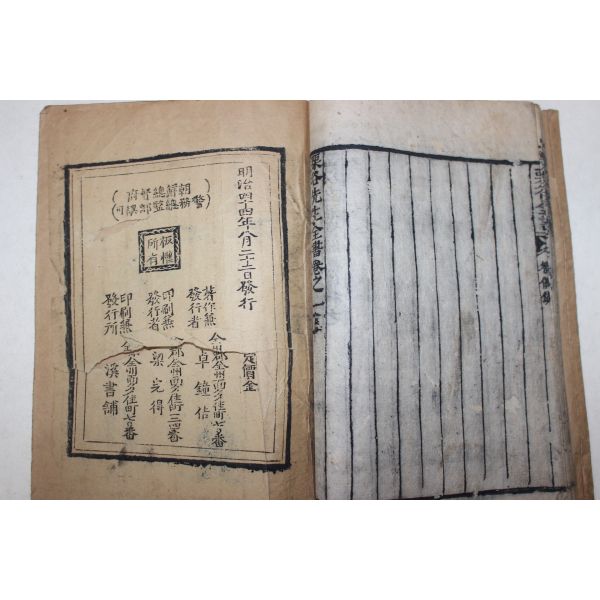 栗谷先生全書卷之一
明治四十四年八月二十二日發行
朝鮮總督府
警務總監部認可
板權
所有
定價金
著作兼
發行者
全州郡全州面多佳町七三番
卓鐘佶
印刷兼
發行者
郡全州面多佳町一三四番
梁完得
印刷兼
發行所
全州面多佳町七三番
溪書舖